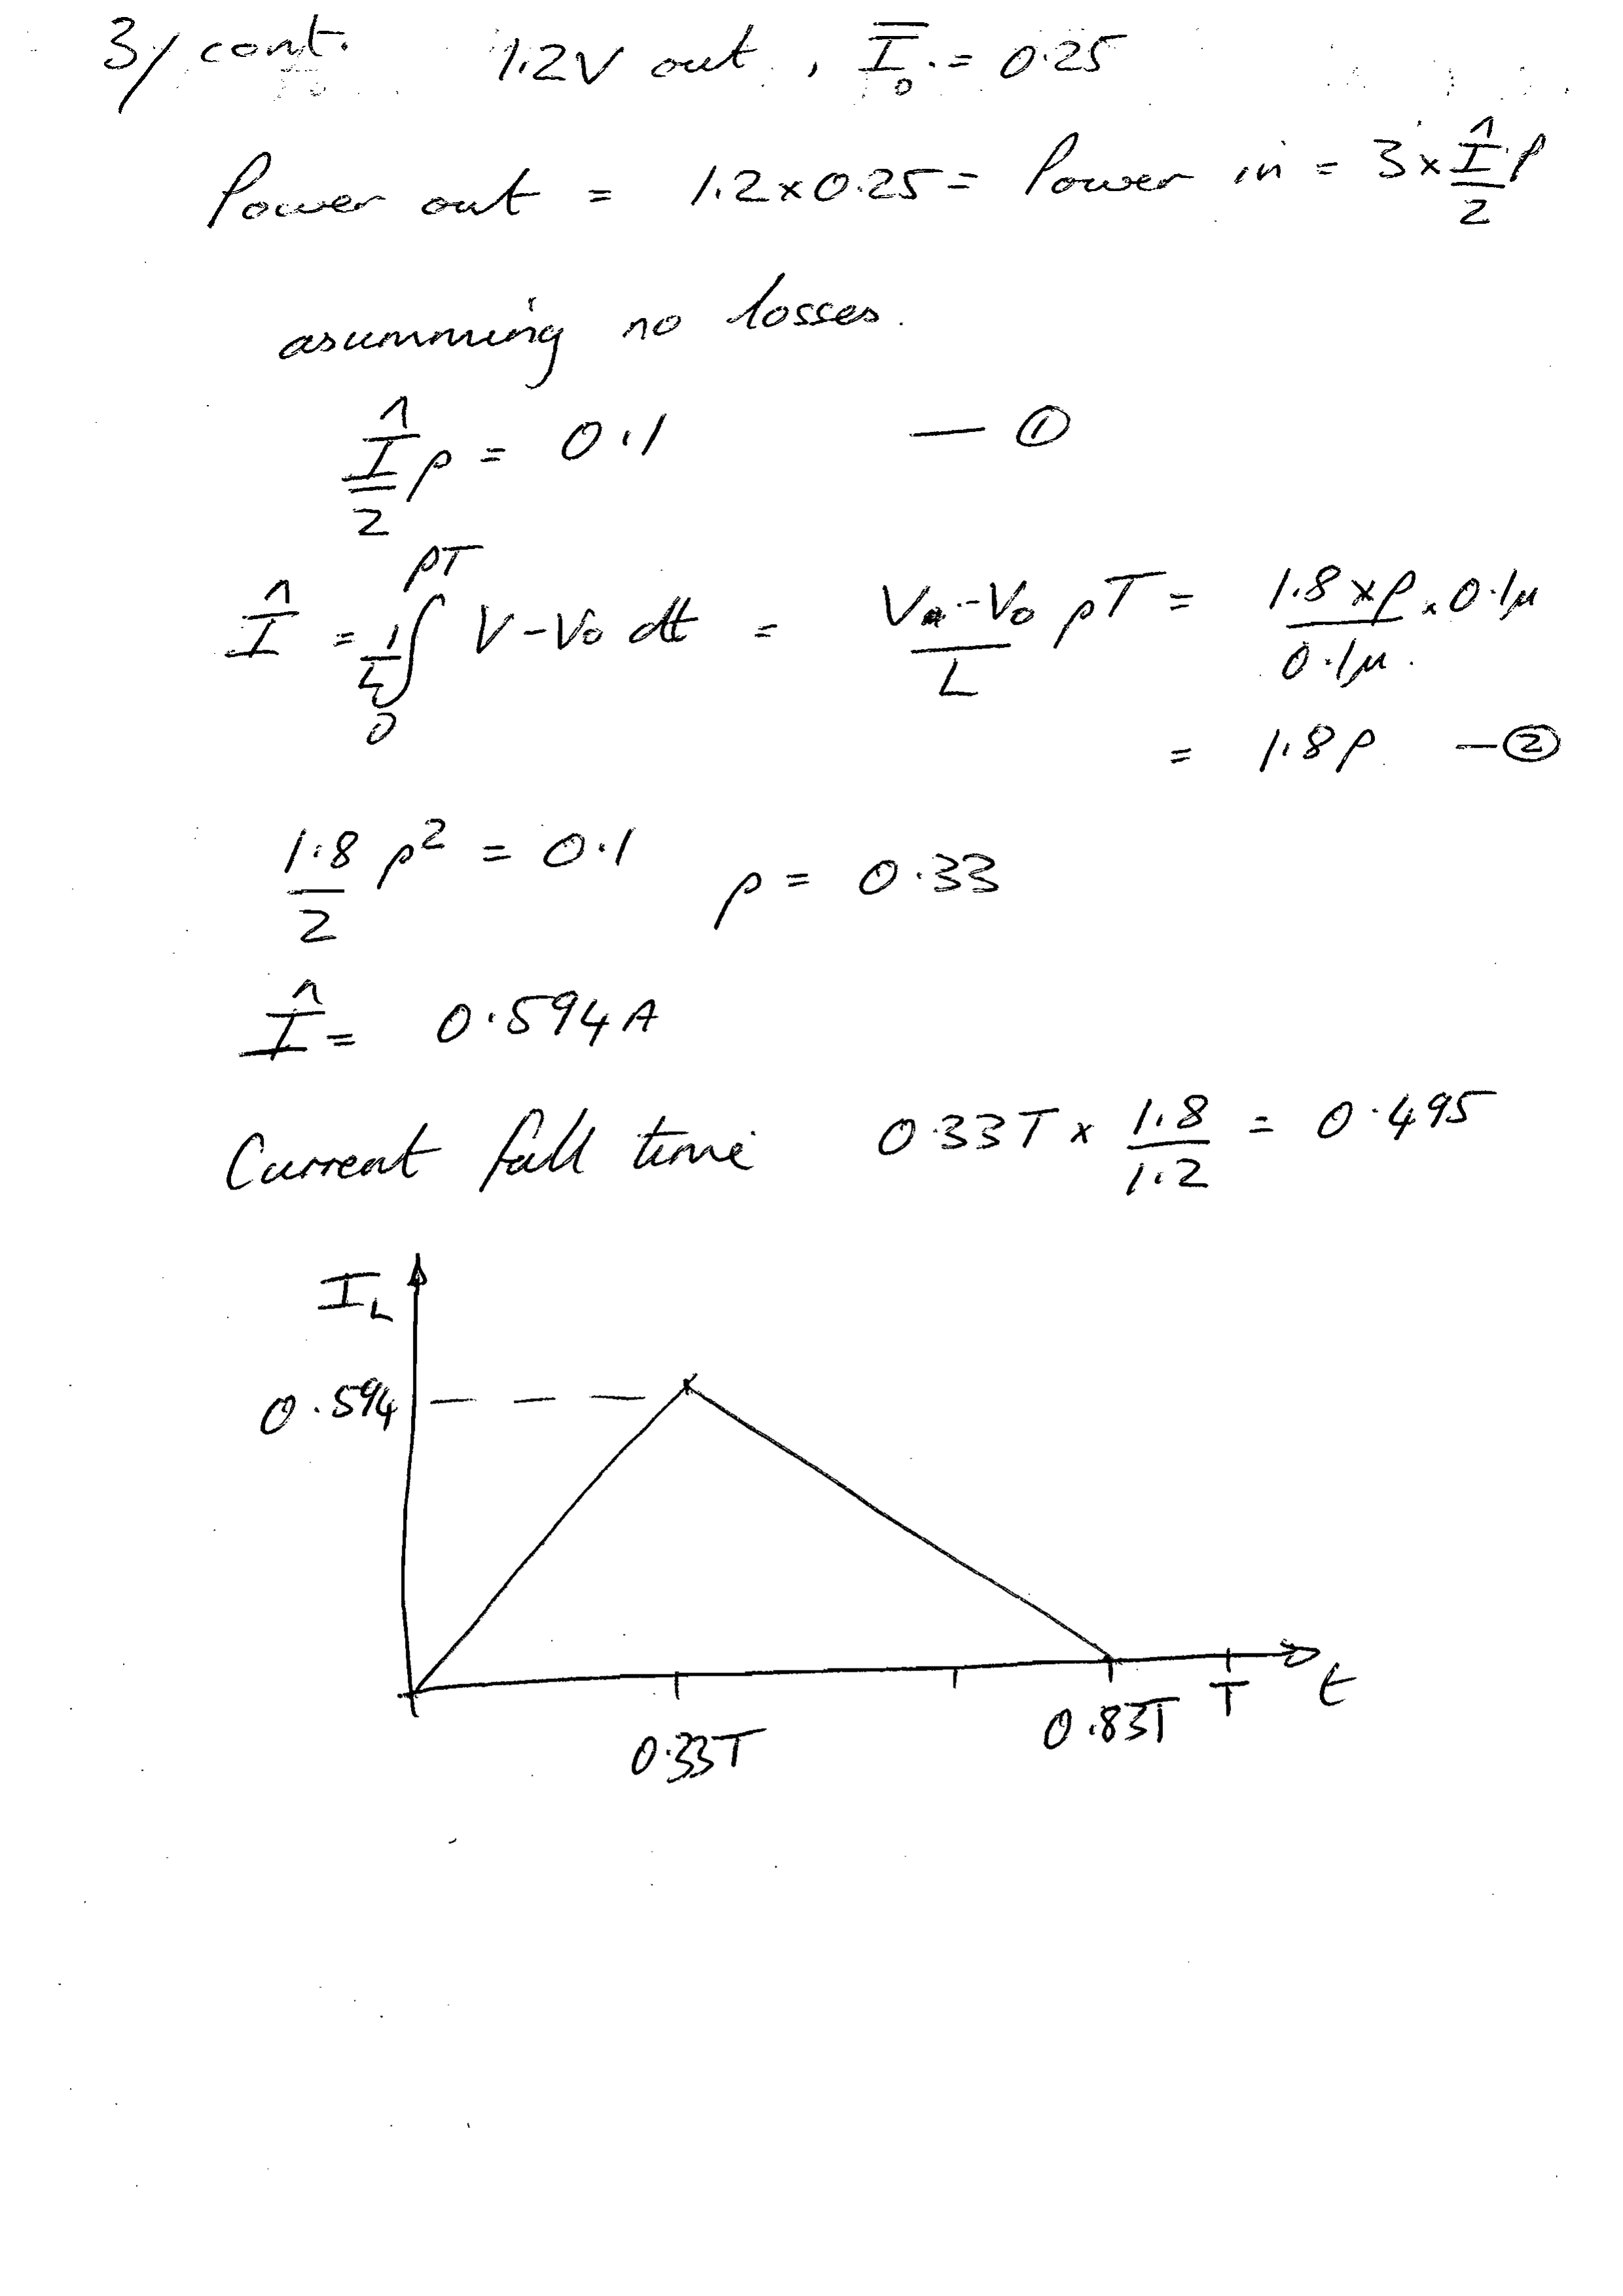 3/ cont. 1.2V out, I̅₀ = 0.25
Power out = 1.2×0.25 = Power in = 3 × Î/2 ρ
asumming no losses.
Î/2 ρ = 0.1 — ①
Î = 1/L ∫₀^ρT V - V₀ dt = (V - V₀)/L ρT = (1.8 × ρ × 0.1μ)/0.1μ.
= 1.8ρ — ②
1.8/2 ρ² = 0.1 ρ = 0.33
Î = 0.594A
Current fall time 0.33T × 1.8/1.2 = 0.495
I_L
0.594
0.33T 0.83T T t